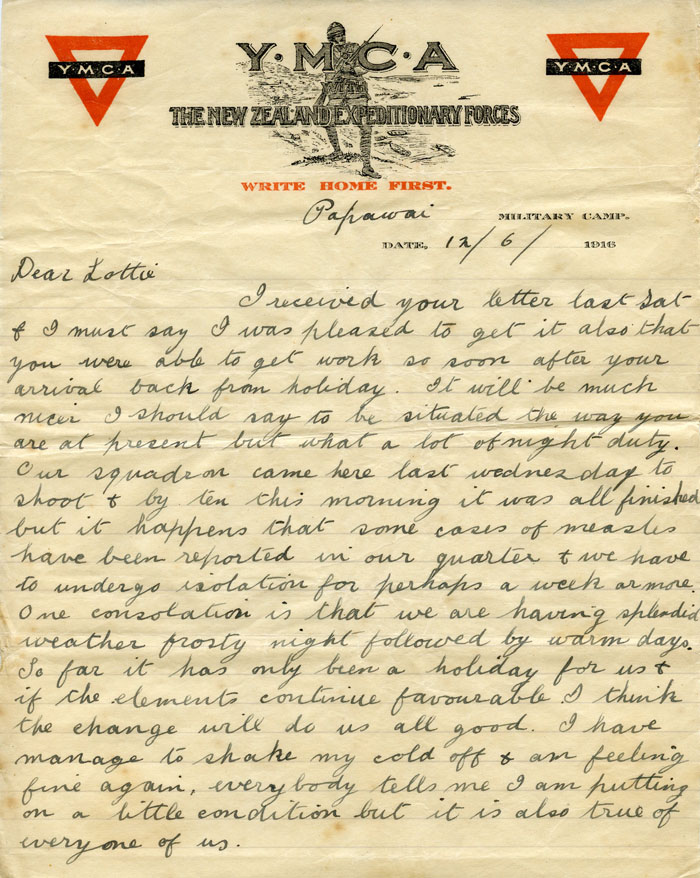 Y·M·C·A
Y·M·C·A
Y·M·C·A
WITH
THE NEW ZEALAND EXPEDITIONARY FORCES
WRITE HOME FIRST.
Papawai MILITARY CAMP.
DATE, 12/6/ 1916
Dear Lottie
I received your letter last Sat
& I must say I was pleased to get it also that
you were able to get work so soon after your
arrival back from holiday. It will be much
nicer I should say to be situated the way you
are at present but what a lot of night duty.
Our squadron came here last wednesday to
shoot & by ten this morning it was all finished
but it happens that some cases of measles
have been reported in our quarter & we have
to undergo isolation for perhaps a week or more.
One consolation is that we are having splendid
weather frosty night followed by warm days.
So far it has only been a holiday for us &
if the elements continue favourable I think
the change will do us all good. I have
manage to shake my cold off & am feeling
fine again, everybody tells me I am putting
on a little condition but it is also true of
everyone of us.